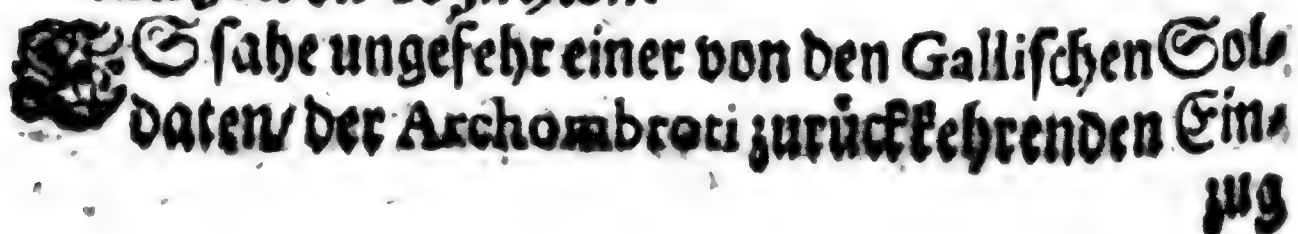 ES sahe ungefehr einer von den Gallischen Sol-
daten/ der Archombroti zurückkehrenden Ein-
zug